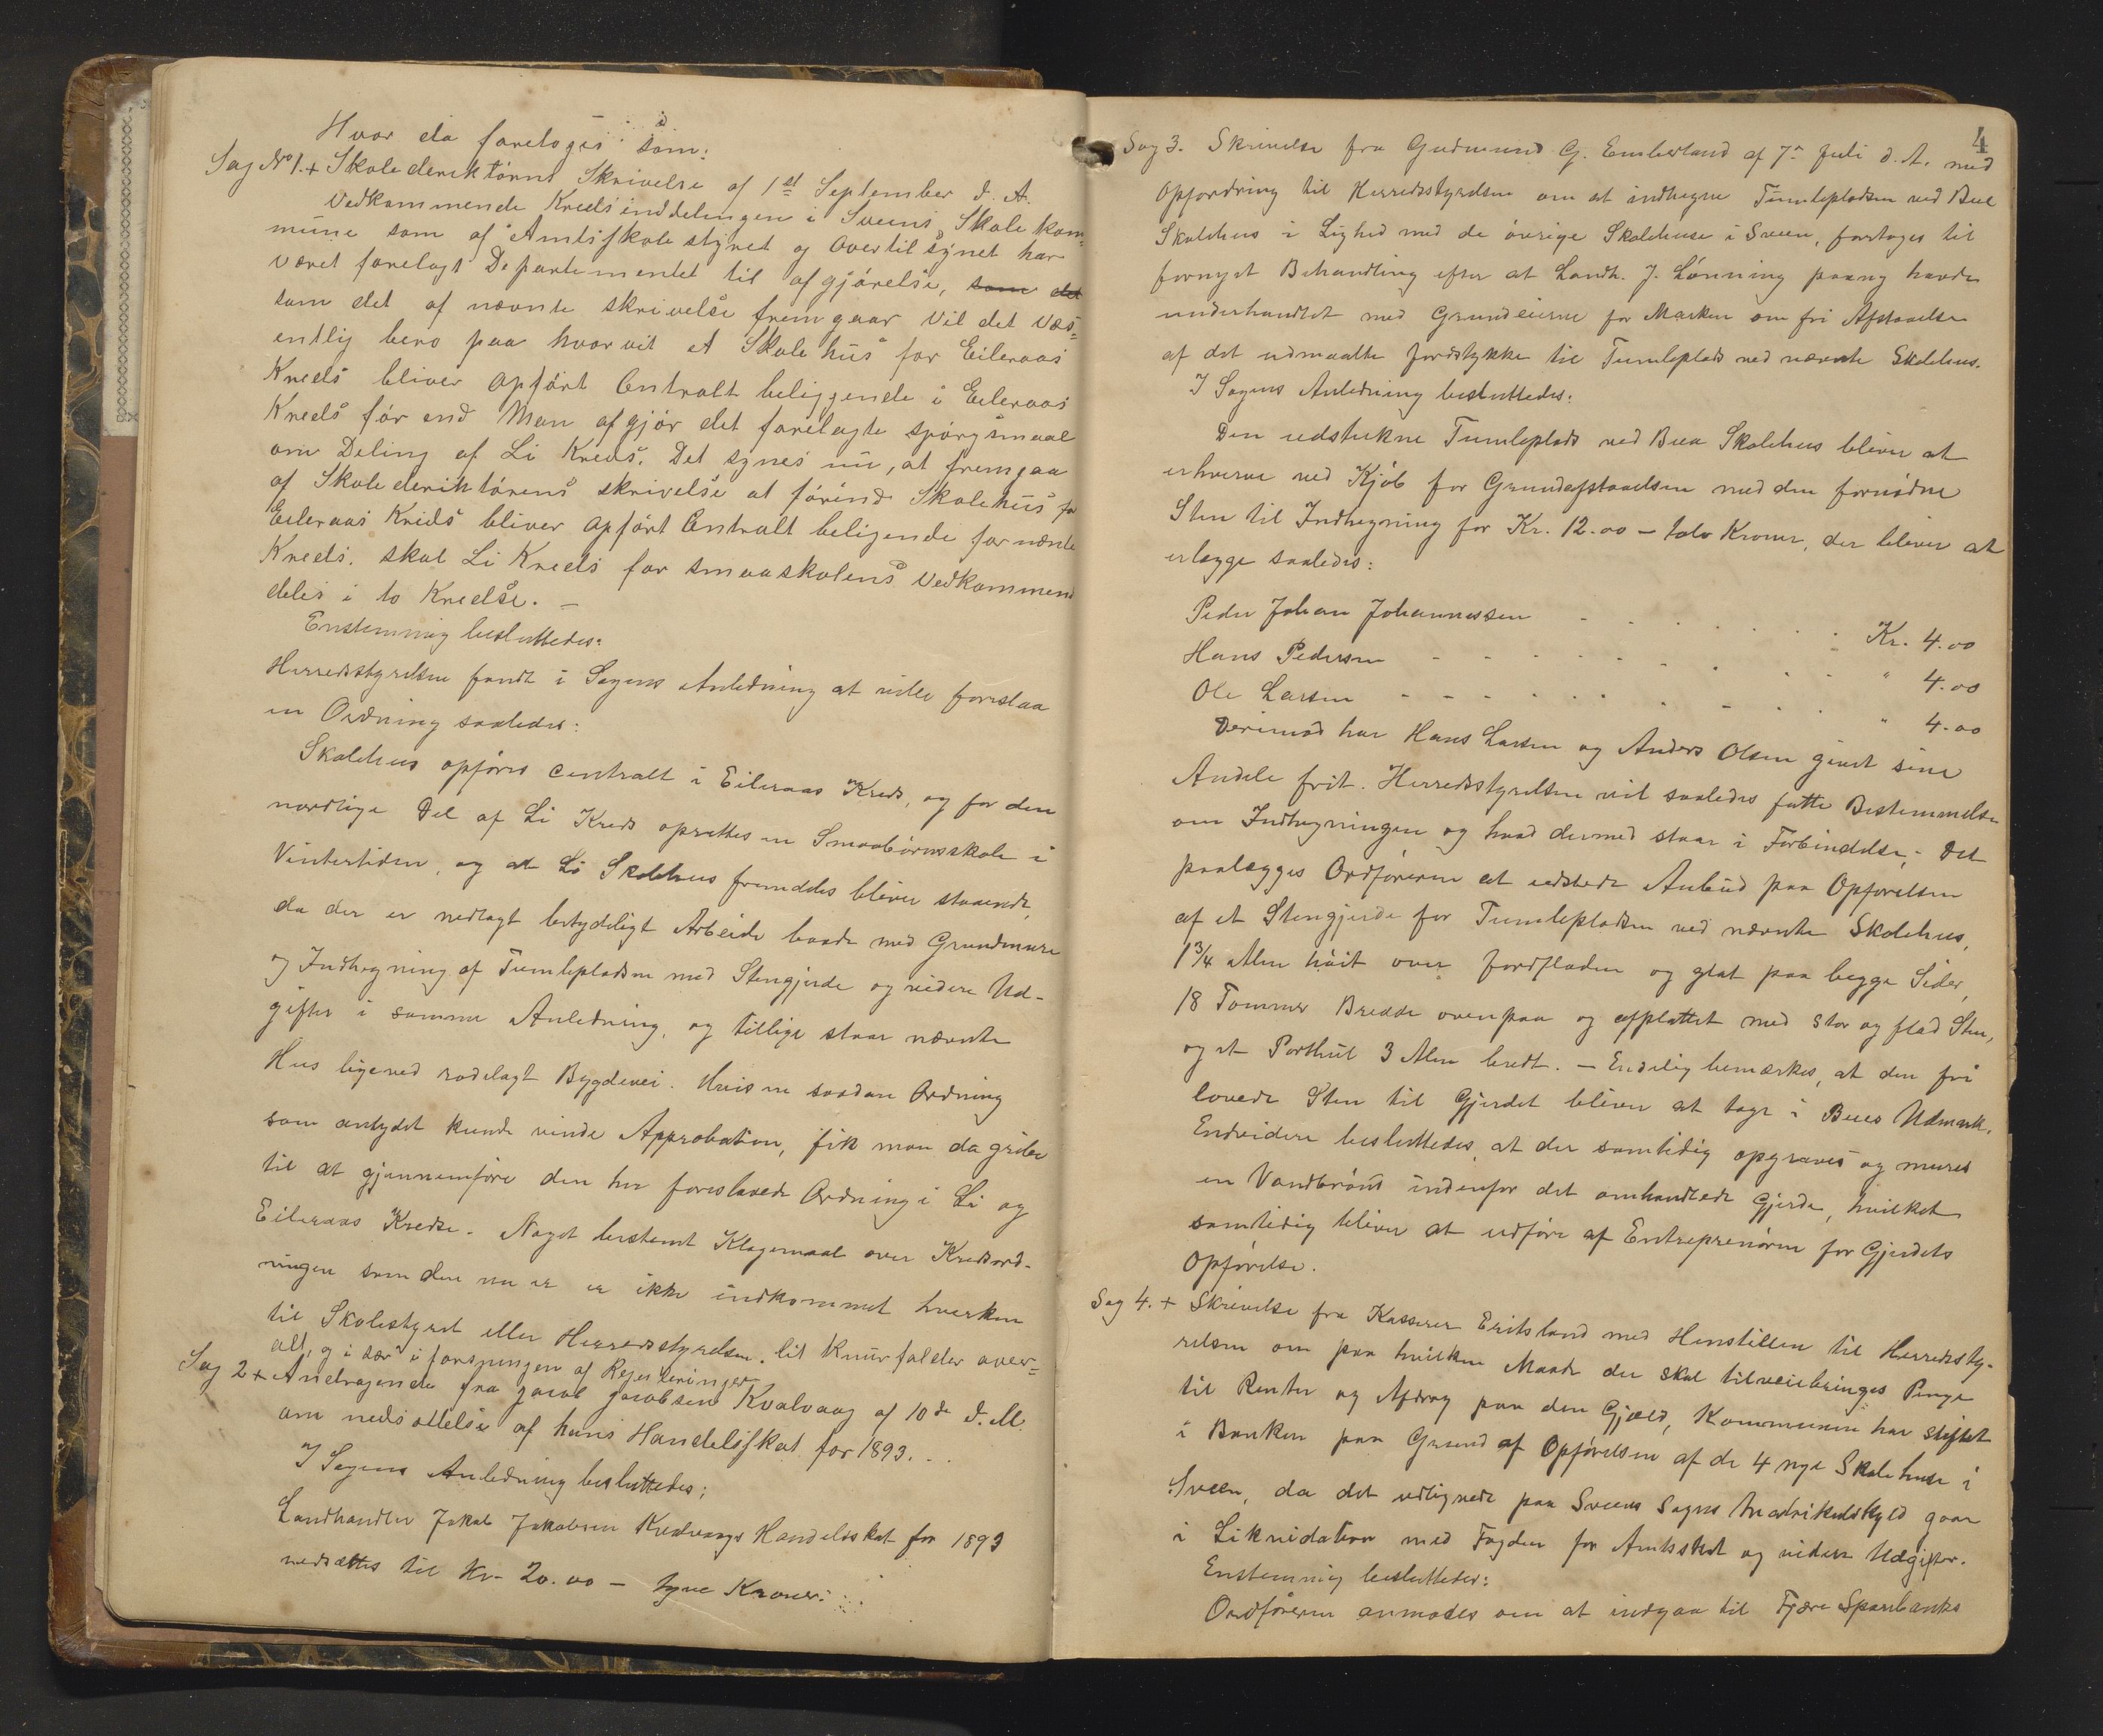 Hvor da foretoges som:
Sag No 1. + Skolederektörens Skrivelse af 1st September d. A.
vedkommende Kredsinddelingen i Sveens Skolekom-
mune som af Amtsskolestyret og Overtilsynet har
været forelagt Departementet til afgjörelse, som det
som det af nævnte skrivelse fremgaar vil det væs-
entlig bero paa hvorvit et Skolehus for Eileraas
Kreds bliver opfört Centralt beliggende i Eileraas
Kreds för end Man afgjör det forelagte spörgsmaal
om Deling af Li Kreds. Det synes nu, at fremgaa
af Skolederektörens skrivelse at förend Skolehus for
Eileraas Kreds bliver opfört Centralt beligende for nævnte
Kreds. skal Li Kreds for smaaskolens vedkommend
deles i to Kredse. —
Enstemmig besluttedes:
Herredsstyrelsen fandt i Sagens Anledning at ville foreslaa
en Ordning saaledes:
Skolehus opföres centralt i Eileraas Kreds, og for den
nordlige Del af Li Kreds oprettes en Smaabörnsskole i
Vintertiden, og at Li Skolehus fremdeles bliver staaende,
da der er nedlagt betydeligt Arbeide baade med Grundmure
og Indhegning af Tumlepladsen med Stengjerde og videre Ud-
gifter i samme Anledning, og tillige staar nævnte
Hus ligeved rodelagt Bygdevei. Hvis en saadan Ordning
som antydet kunde vinde Approbation, fik man da gribe
til at gjennemföre den her foreslaaede Ordning i Li og
Eileraas Kredse. Noget bestemt Klagemaal over Kredsord-
ningen som den nu er er ikke indkommet hverken
til Skolestyret eller Herredsstyrelsen. lit Knurr falder over-
alt, og i sær i forsyningen af Reguleringer
Sag 2 + Andragende fra Jacob Jacobsen Kvalvaag af 10de d. M.
om nedsættelse af hans Handelsskat for 1893. . .
I Sagens Anledning besluttedes:
Landhandler Jakob Jakobsen Kvalvaags Handelsskat for 1893
nedsættes til Kr. 20.00 — tyve Kroner.
4
Sag 3. Skrivelse fra Gudmund G. Emberland af 7de Juli d. A. med
Opfordring til Herredsstyrelsen om at indhegne Tumlepladsen ved Bue
Skolehus i Lighed med de övrige Skolehuse i Sveen, foretoges til
fornyet Behandling efter at Landh. J. Lönning paany havde
underhandlet med Grundeierne for Marken om fri Afstaaelse
af det udmaalte Jordstykke til Tumleplads ved nævnte Skolehus.
I Sagens Anledning besluttedes:
Den udstukne Tumleplads ved Bua Skolehus bliver at
erhverve ved Kjöb for Grundafstaaelsen med den fornödne
Sten til Indhegning for Kr. 12.00 — tolv Kroner, der bliver at
erlægge saaledes:
Peder Johan Johannessen - - - - - - - Kr. 4.00
Hans Pedersen - - - - - - - - - - " 4.00
Ole Larsen - - - - - - - - - - - " 4.00
Derimod har Hans Larsen og Anders Olsen givet sine
Andele frit. Herredsstyrelsen vil saaledes fatte Bestemmelse
om Indhegningen og hvad dermed staar i Forbindelse; - Det
paalægges Ordföreren at udstede Anbud paa Opförelsen
af et Stengjerde for Tumlepladsen ved nævnte Skolehus,
1 3/4 Alen höit over Jordfladen og glat paa begge Sider,
18 Tommer Bredde ovenpaa og afplattet med stor og flad Sten,
og et Porthul 3 Alen bredt. — Endelig bemærkes, at den frit
lovede Sten til Gjerdet bliver at tage i Bues Udmark.
Endvidere besluttedes, at der samtidig opgraves og mures
en Vandbrönd indenfor det omhandlede Gjerde, hvilket
samtidig bliver at udföre af Entreprenören for Gjerdets
Opförelse.
Sag 4. + Skrivelse fra Kasserer Eritsland med Henstillen til Herredssty-
relsen om paa hvilken Maade der skal tilveiebringes Penge
til Renter og Afdrag paa den Gjæld, Kommunen har stiftet
i Banken paa Grund af Opförelsen af de 4 nye Skolehuse i
Sveen, da det udlignede paa Sveens Sogns Matrikulskyld gaar
i Likvidation med Fogden for Amtsskat og videre Udgifter.
Enstemmig besluttedes:
Ordföreren anmodes om at indgaa til Fjære Sparebanks